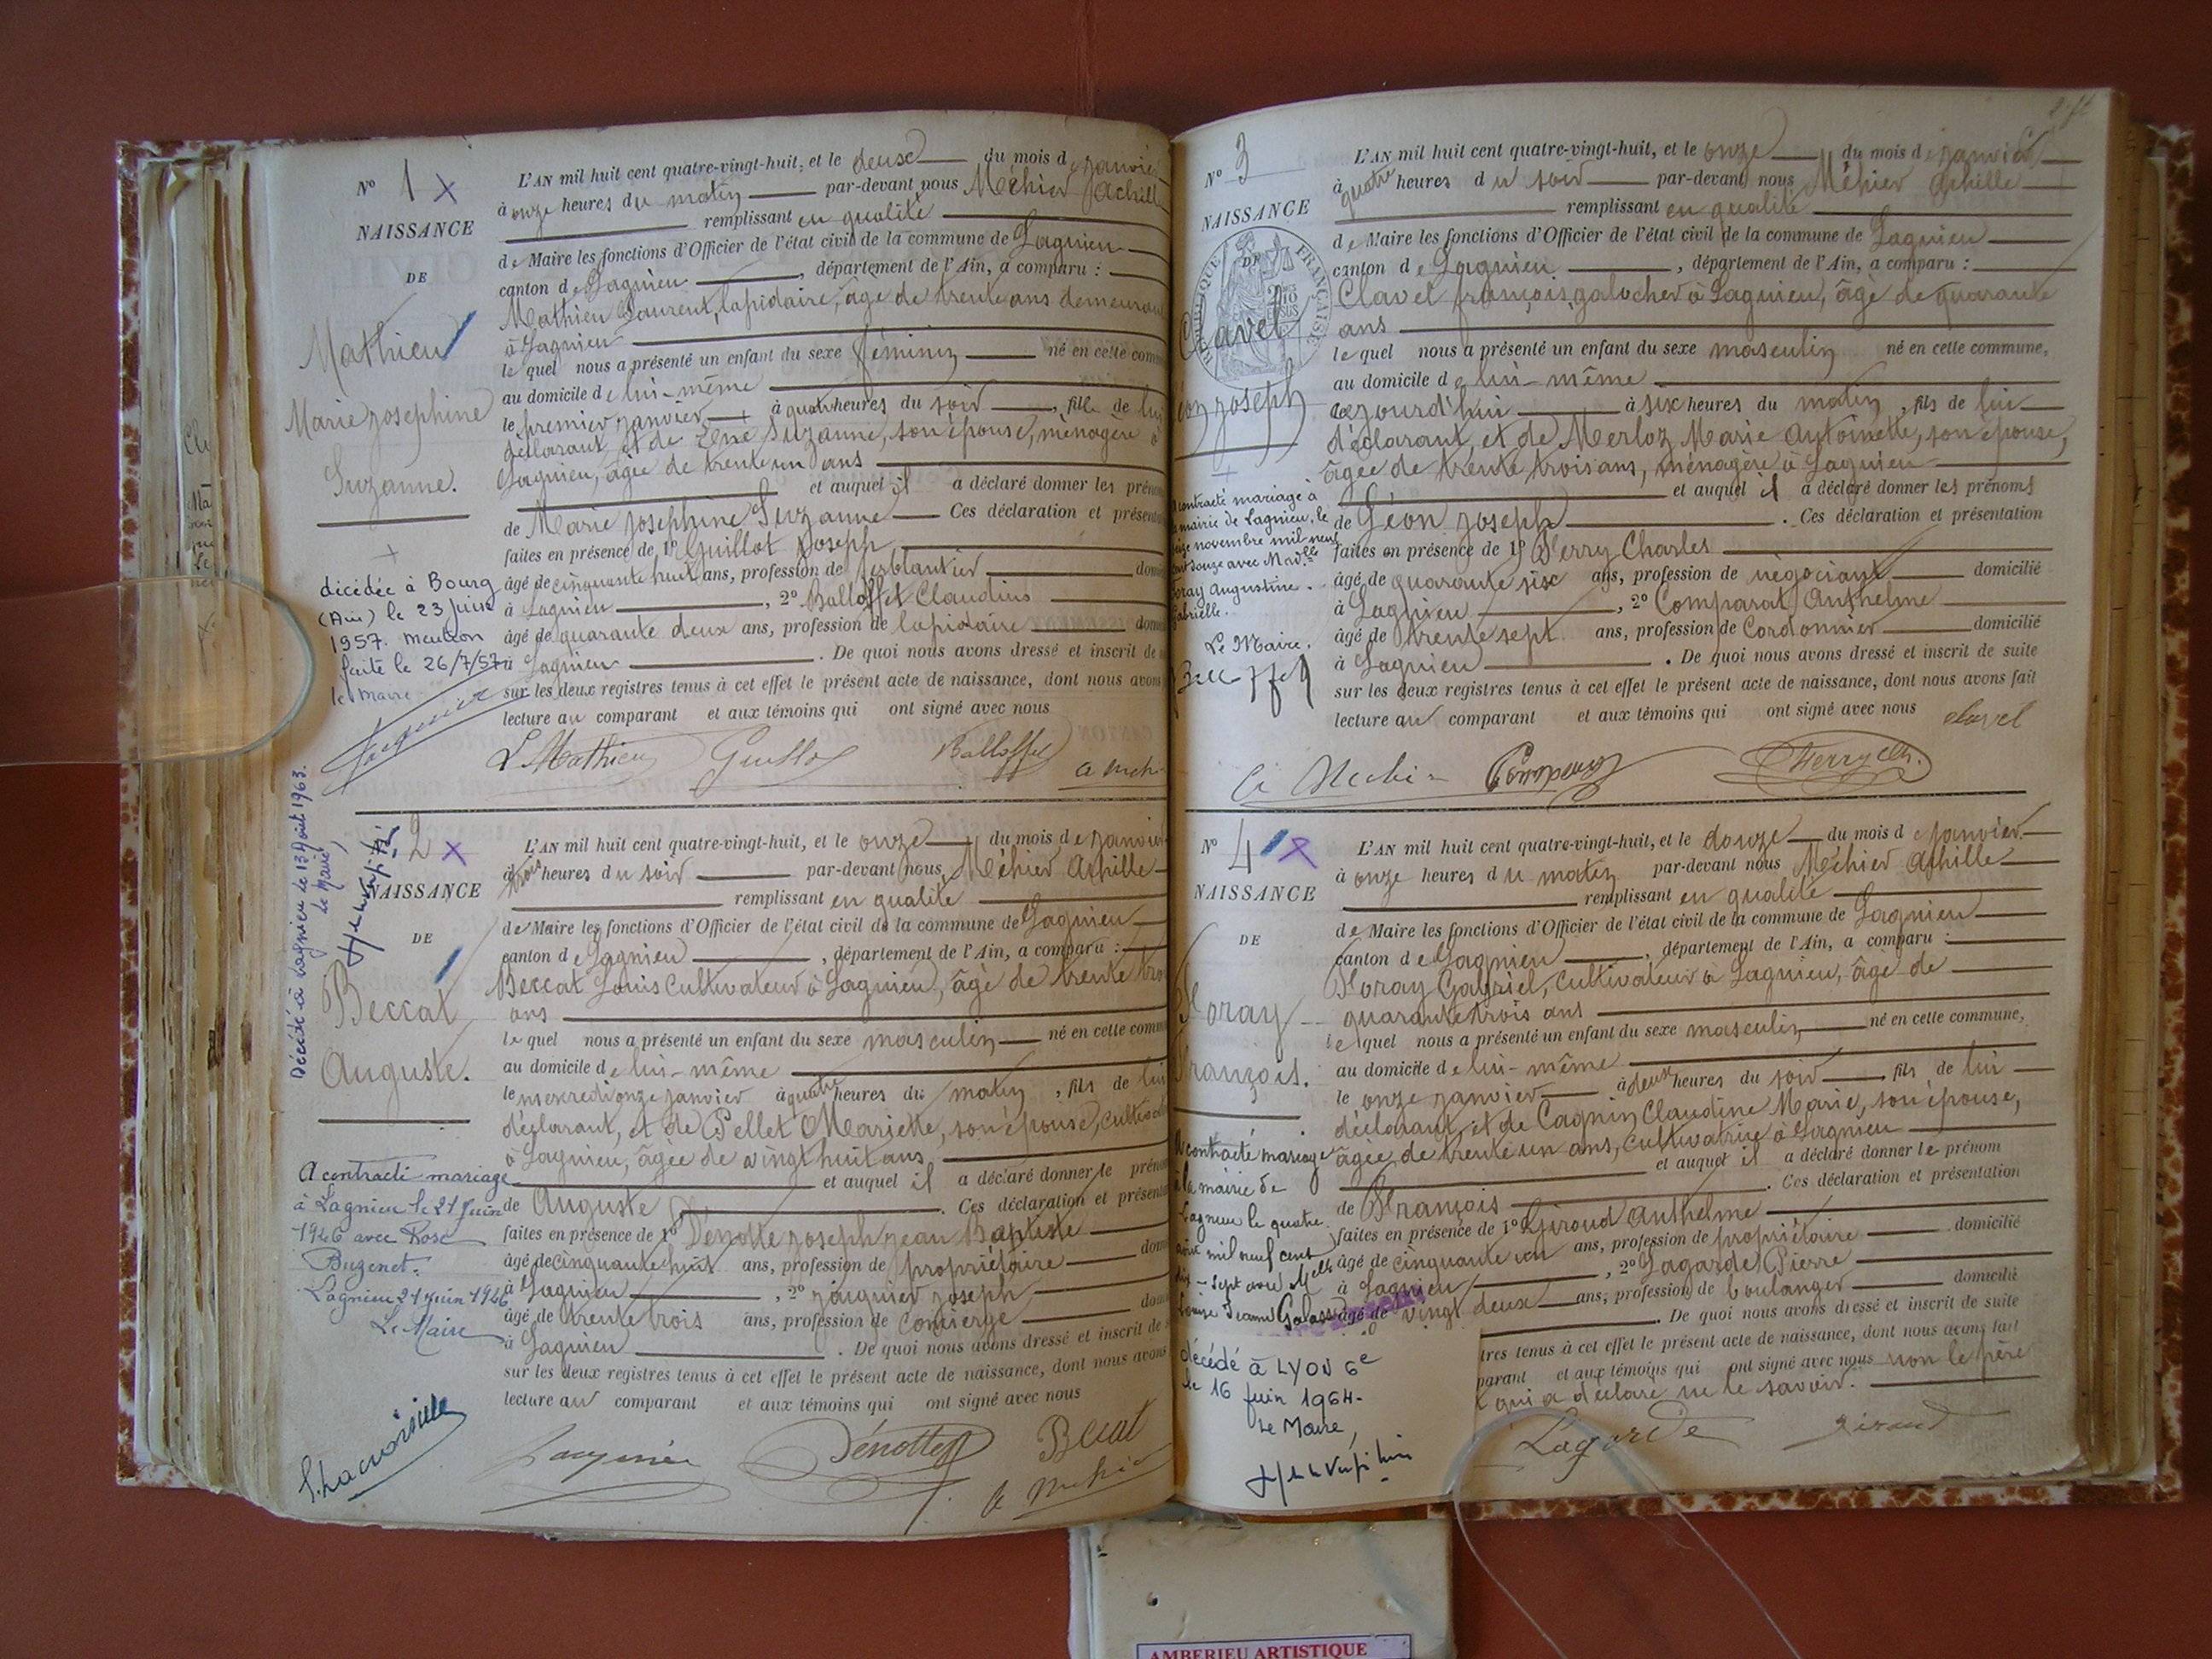 Nº 1 x
NAISSANCE
DE
Mathieu
Marie Joséphine
Suzanne.
décédée à Bourg
(Ain) le 23 juin
1957. mention
faite le 26/7/57
le maire
L'AN mil huit cent quatre-vingt-huit, et le deux du mois de janvier
à onze heures du matin par-devant nous Méhier Achille
remplissant en qualité
de Maire les fonctions d'Officier de l'état civil de la commune de Lagnieu
canton de Lagnieu, département de l'Ain, a comparu :
Mathieu Laurent, lapidaire, âgé de trente ans demeurant
à Lagnieu
le quel nous a présenté un enfant du sexe féminin né en cette com
au domicile de lui-même
le premier janvier à quatre heures du soir, fille de lui
déclarant et de Suzanne, son épouse, ménagère à
Lagnieu, âgée de trente un ans
et auquel il a déclaré donner les préno
de Marie Joséphine Suzanne Ces déclaration et présenta
faites en présence de 1º Guillot Joseph
âgé de cinquante huit ans, profession de ferblantier dom
à Lagnieu, 2º Balloffet Claudius
âgé de quarante deux ans, profession de lapidaire dom
à Lagnieu. De quoi nous avons dressé et inscrit de
sur les deux registres tenus à cet effet le présent acte de naissance, dont nous avons
lecture au comparant et aux témoins qui ont signé avec nous
L. Mathieu Guillot Balloffet
Nº 2 x
NAISSANCE
DE
Beccat
Auguste.
Décédé à Lagnieu le 13 Août 1963.
Le Maire,
A contracté mariage
à Lagnieu le 21 Juin
1926 avec Rose
Buzenet.
Lagnieu 21 Juin 1926
Le Maire
L'AN mil huit cent quatre-vingt-huit, et le onze du mois de janvier
à trois heures du soir par-devant nous, Méhier Achille
remplissant en qualité
de Maire les fonctions d'Officier de l'état civil de la commune de Lagnieu
canton de Lagnieu, département de l'Ain, a comparu :
Beccat Louis Cultivateur à Lagnieu, âgé de trente trois
ans
le quel nous a présenté un enfant du sexe masculin né en cette comm
au domicile de lui-même
le mercredi onze janvier à quatre heures du matin, fils de lui
déclarant, et de Pellet Mariette, son épouse, cultiva
à Lagnieu, âgée de vingt huit ans
et auquel il a déclaré donner le préno
de Auguste. Ces déclaration et présenta
faites en présence de 1º Dénotte Joseph Jean Baptiste
âgé de cinquante huit ans, profession de propriétaire dom
à Lagnieu, 2º Janquier Joseph
âgé de trente trois ans, profession de Concierge dom
à Lagnieu. De quoi nous avons dressé et inscrit de
sur les deux registres tenus à cet effet le présent acte de naissance, dont nous avons
lecture au comparant et aux témoins qui ont signé avec nous
Dénotte Beccat
Nº 3
NAISSANCE
DE
Clavel
Léon Joseph
A contracté mariage à
mairie de Lagnieu, le
novembre mil neuf
cent onze avec Mad.lle
Foray Augustine.
Gabrielle.
Le Maire,
L'AN mil huit cent quatre-vingt-huit, et le onze du mois de janvier
à quatre heures du soir par-devant nous Méhier Achille
remplissant en qualité
de Maire les fonctions d'Officier de l'état civil de la commune de Lagnieu
canton de Lagnieu, département de l'Ain, a comparu :
Clavel françois, galocher à Lagnieu, âgé de quarante
ans
le quel nous a présenté un enfant du sexe masculin né en cette commune,
au domicile de lui-même
aujourd'hui à six heures du matin, fils de lui
déclarant, et de Merloz Marie Antoinette, son épouse,
âgée de trente trois ans, ménagère à Lagnieu
et auquel il a déclaré donner les prénoms
de Léon Joseph. Ces déclaration et présentation
faites en présence de 1º Ferry Charles
âgé de quarante six ans, profession de négociant domicilié
à Lagnieu, 2º Comparat Anthelme
âgé de trente sept ans, profession de Cordonnier domicilié
à Lagnieu. De quoi nous avons dressé et inscrit de suite
sur les deux registres tenus à cet effet le présent acte de naissance, dont nous avons fait
lecture au comparant et aux témoins qui ont signé avec nous Clavel
Ferry Ch.
Nº 4
NAISSANCE
DE
Foray
François.
A contracté mariage
à la mairie de
Lagnieu le quatre
août mil neuf cent
dix-sept avec Melle
Louise Jeanne
décédé à LYON 6e
le 16 Juin 1964-
Le Maire,
L'AN mil huit cent quatre-vingt-huit, et le douze du mois de janvier
à onze heures du matin par-devant nous Méhier Achille
remplissant en qualité
de Maire les fonctions d'Officier de l'état civil de la commune de Lagnieu
canton de Lagnieu, département de l'Ain, a comparu :
Foray Gabriel, cultivateur à Lagnieu, âgé de
quarante trois ans
le quel nous a présenté un enfant du sexe masculin né en cette commune,
au domicile de lui-même
le onze janvier à deux heures du soir, fils de lui
déclarant, et de Cagnin Claudine Marie, son épouse,
âgée de trente un ans, cultivatrice à Lagnieu
et auquel il a déclaré donner le prénom
de François. Ces déclaration et présentation
faites en présence de 1º Giroud Anthelme
âgé de cinquante un ans, profession de propriétaire domicilié
à Lagnieu, 2º Lagarde Pierre
âgé de vingt deux ans, profession de boulanger domicilié
. De quoi nous avons dressé et inscrit de suite
tres tenus à cet effet le présent acte de naissance, dont nous avons fait
parant et aux témoins qui ont signé avec nous non le père
qui a déclaré ne le savoir.
Lagarde Giroud
AMBERIEU ARTISTIQUE